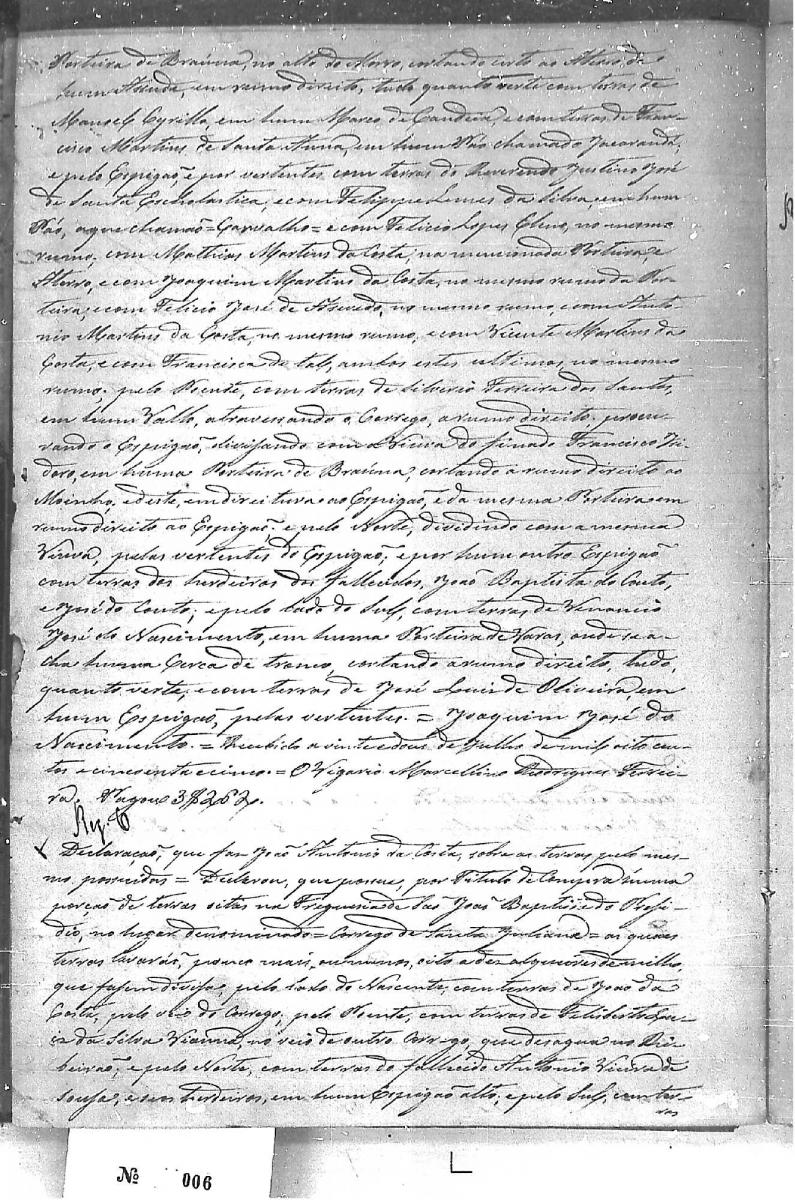 Porteira de Braúna, no alto do Morro, cortando certo ao Aterro, de
hum Assude, em rumo direito, tudo quanto verte com terras de
Manoel Cyrillo, em hum Marco de Candeia, e com terras de Fran-
cisco Martins de Santa Anna, em hum Páo chamado Jacarandá,
e pelo Espigaõ, e por vertentes com terras do Reverendo Justino José
de Santa Escholastica, e com Felippe Lemes da Silva, em hum
Páo, a que chamaõ = Carvalho = e com Felicio Lopes, no mesmo
rumo, com Mathias Martins da Costa, na mencionada Porteira, e
Aterro, e com Joaquim Martins da Costa, no mesmo rumo da Por-
teira, e com Felicio José de Azevedo, no mesmo rumo, e com Anto-
nio Martins da Costa, no mesmo rumo, e com Vicente Martins da
Costa, e com Francisca de tal, ambos estes ultimos, no mesmo
rumo; pelo Poente, com terras de Silverio Ferreira dos Santos,
em hum Vallo, atravessando o Corrego, a rumo direito, procu-
rando o Espigaõ, divisando com a Viuva do finado Francisco Izi-
doro, em huma Porteira de Braúna, cortando a rumo direito ao
Moinho, e deste, em direitura ao Espigaõ, e da mesma Porteira em
rumo direito ao Espigaõ: e pelo Norte, dividindo com a mesma
Viuva, pelas vertentes do Espigaõ, e por hum outro Espigaõ
com terras dos herdeiros dos fallecidos, Joaõ Baptista do Couto,
e José do Couto; e pelo lado do Sul, com terras de Venancio
José do Nascimento, em huma Porteira de Varas, onde se a-
cha huma Cerca de tranco, cortando a rumo direito, tudo,
quanto verte, e com terras de José Luis de Oliveira, em
hum Espigaõ, pelas vertentes. = Joaquim José do
Nascimento. = Recebido a vinte e dous de Julho de mil oito cen-
tos e cincoenta e cinco. = O Vigario Marcellino Rodrigues Ferrei-
ra. Pagou 3$252.
Reg. 6
Declaraçaõ, que faz Joaõ Antonio da Costa, sobre as terras pelo mes-
mo possuidas = Declarou, que possue, por Titulo de Compra huma
porçaõ de terras sitas na Freguesia de Saõ Joaõ Baptista do Presi-
dio, no lugar denominado = Corrego de Santa Juliana = as quaes
terras levaráõ, pouco mais, ou menos, oito a dez alqueires de milho,
que fasem divisa, pelo lado do Nascente, com terras de Joaõ da
Costa, pelo veio do Corrego; pelo Poente, com terras de Feliberto
da Silva Vianna, no veio de outro Corrego, que desagua no Ri-
beiraõ; e pelo Norte, com terras do fallecido Antonio Vieira de
Sousa, e seus herdeiros, em hum Espigaõ alto; e pelo Sul, com ter-
ras
Nº 006